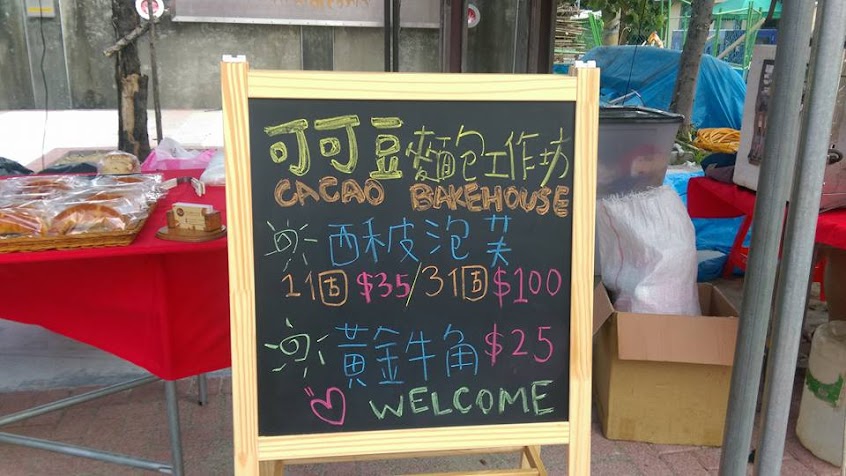 可可豆麵包工作坊
CACAO BAKEHOUSE
酥皮泡芙
1個$35/3個$100
黃金牛角$25
WELCOME